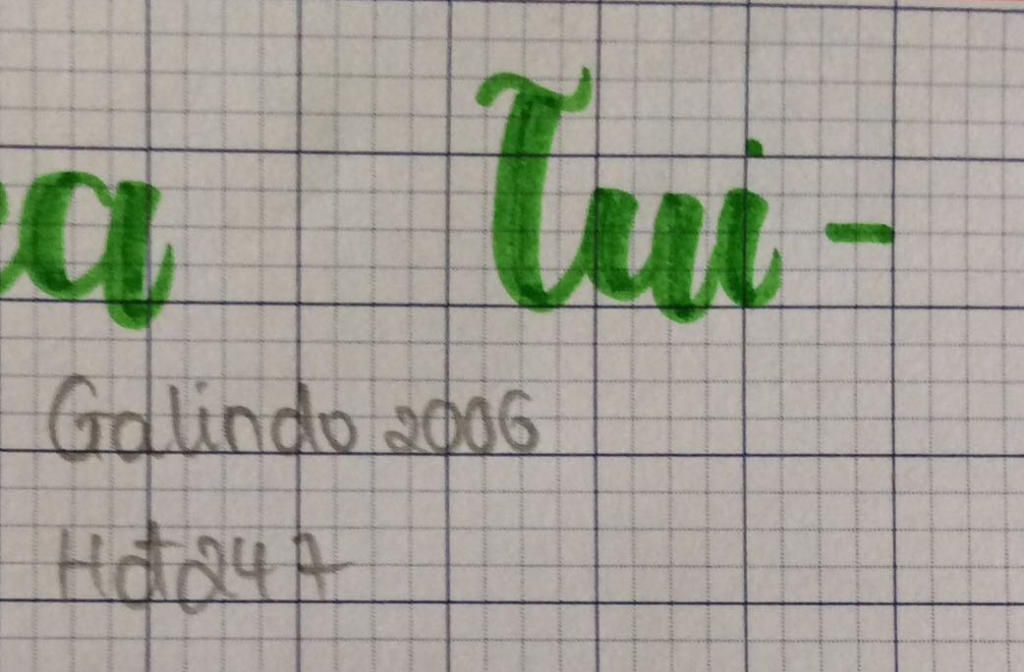 a Tui-
Galindo 2006
Hda247